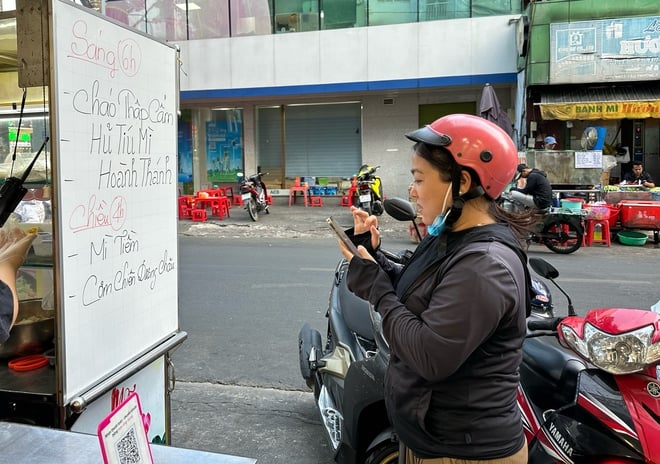 Sáng 6h
- Cháo Thập Cẩm
- Hủ Tíu Mì
Hoành Thánh
Chiều 4h
- Mì Tiềm
- Cơm Chiên Dương Châu
BÁNH MÌ
YAMAHA